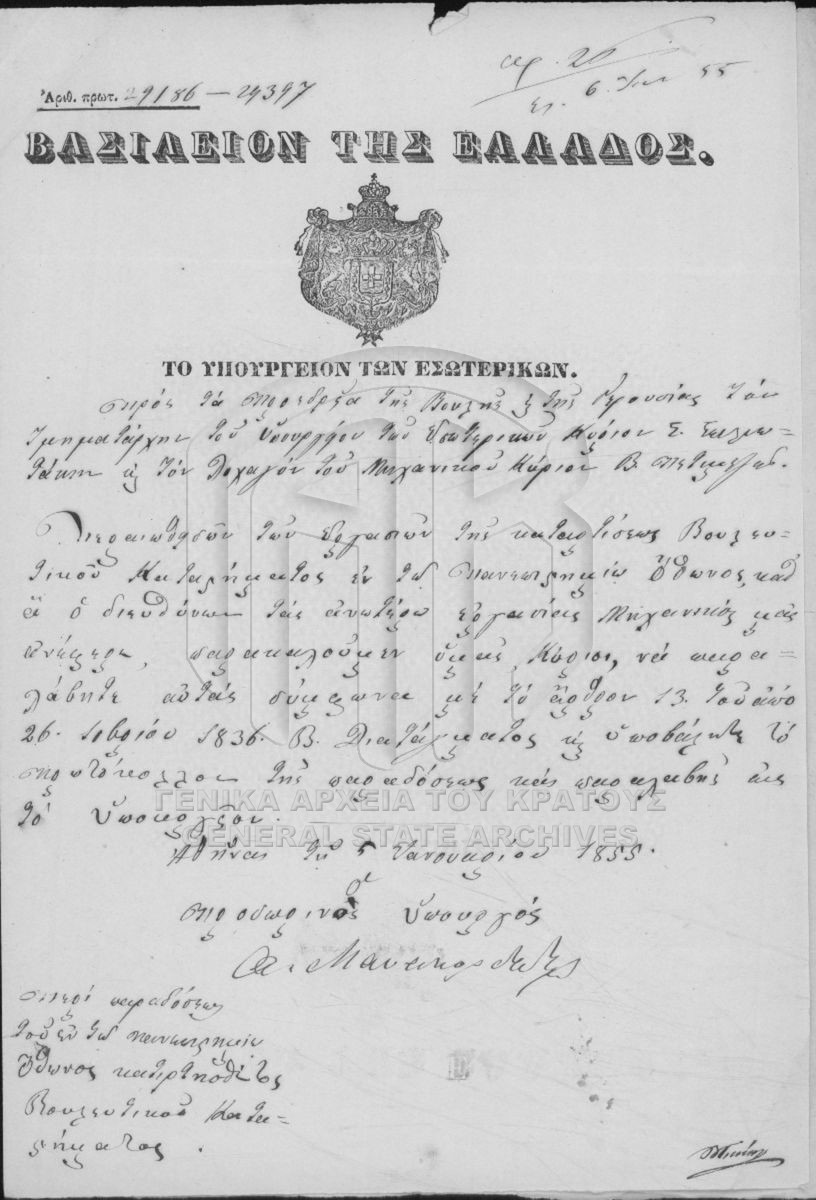 Ἀριθ. πρωτ. 29186 — 29397
αρ. 26
6 Ιαν 55
ΒΑΣΙΛΕΙΟΝ ΤΗΣ ΕΛΛΑΔΟΣ.
ΤΟ ΥΠΟΥΡΓΕΙΟΝ ΤΩΝ ΕΣΩΤΕΡΙΚΩΝ.
Πρὸς τὰ Προεδρεῖα τῆς Βουλῆς & τῆς Γερουσίας τὸν
Τμηματάρχην τοῦ Ὑπουργείου τῶν Ἐσωτερικῶν Κύριον Σ.
& τὸν Λοχαγὸν τοῦ Μηχανικοῦ Κύριον Β.
Περαιωθεισῶν τῶν ἐργασιῶν τῆς καταρτίσεως Βουλευ-
τικοῦ Καταστήματος ἐν τῷ Πανεπιστημίῳ Ὄθωνος, καθ'
ἃ ὁ διευθύνων τὰς ἀνωτέρω ἐργασίας Μηχανικὸς μᾶς
ἀνέφερε, παρακαλοῦμεν ὑμᾶς, Κύριοι, νὰ παρα-
λάβητε αὐτὰς σύμφωνα μὲ τὸ ἄρθρον 13. τοῦ ἀπὸ
26. 1836. Β. Διατάγματος & ὑποβάλητε τὸ
πρωτόκολλον τῆς παραδόσεως καὶ παραλαβῆς εἰς
τὸ Ὑπουργεῖον.
Ἀθῆναι τῇ 5 Ἰανουαρίου 1855.
Ὁ
Προσωρινὸς Ὑπουργὸς
Α. Μαυροκορδάτος
Περὶ παραδόσεως
τοῦ ἐν τῷ Πανεπιστημίῳ
Ὄθωνος καταρτισθέντος
Βουλευτικοῦ Κατα-
στήματος.
ΓΕΝΙΚΑ ΑΡΧΕΙΑ ΤΟΥ ΚΡΑΤΟΥΣ
GENERAL STATE ARCHIVES